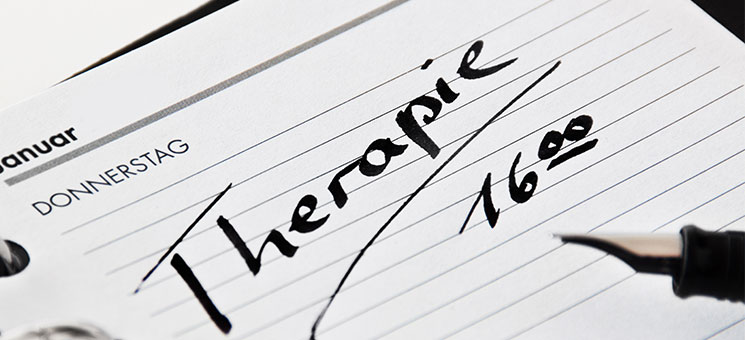 Januar
DONNERSTAG
Therapie
16 00